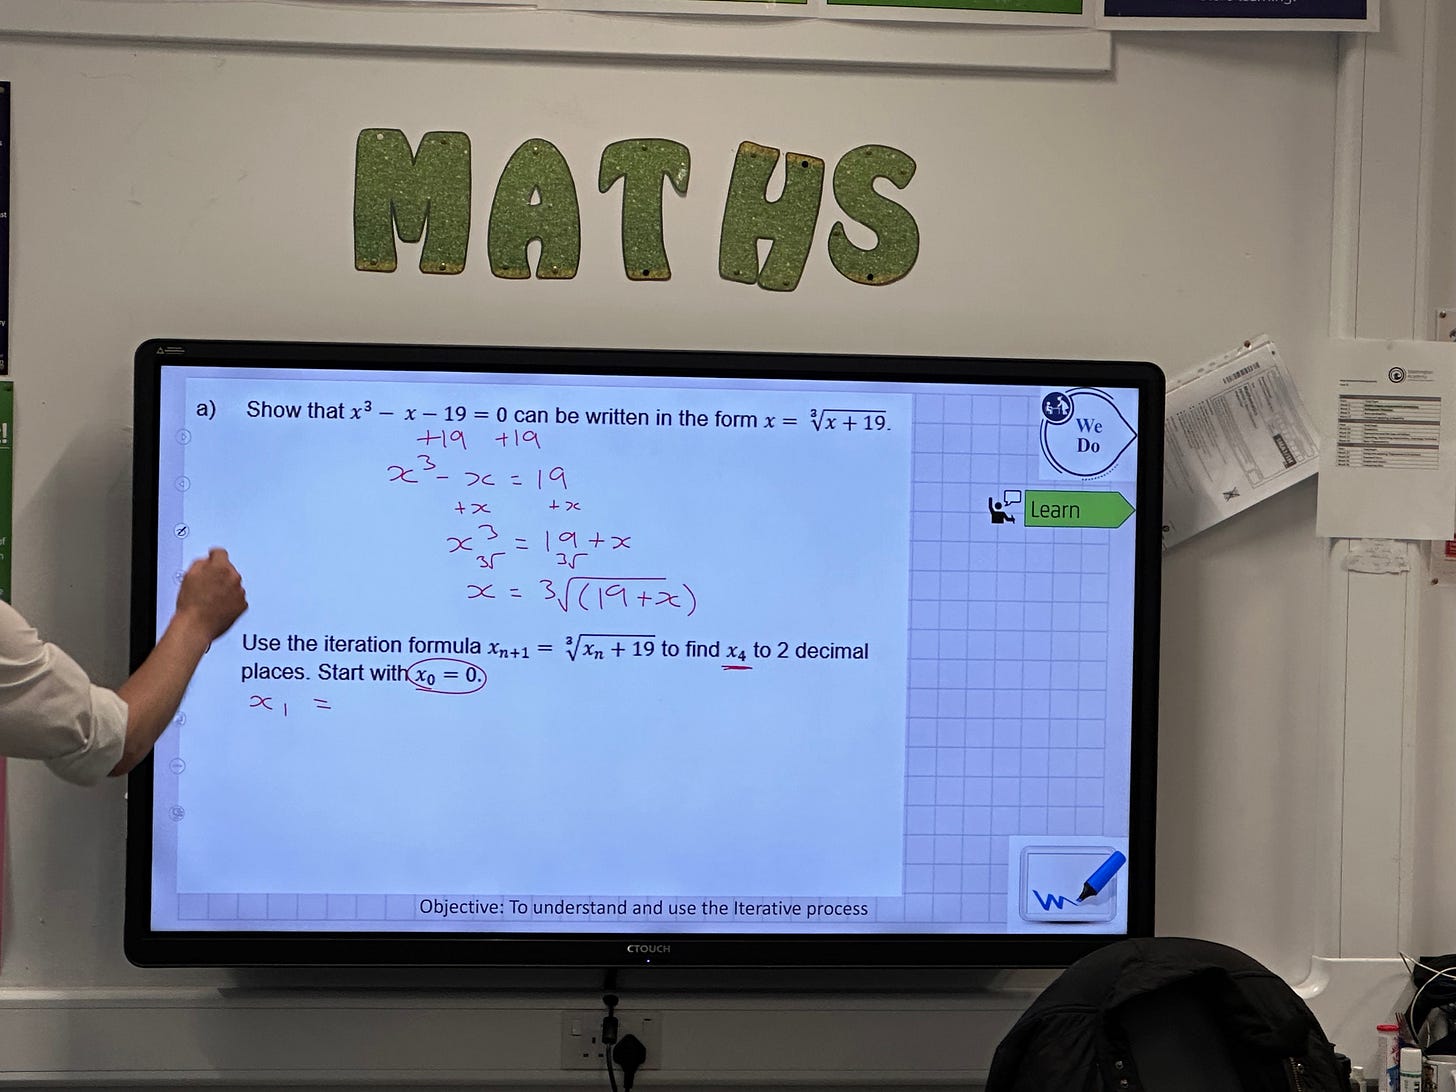 MATHS
a) Show that x³ − x − 19 = 0 can be written in the form x = ∛(x + 19).
+19 +19
x³ - x = 19
+x +x
x³ = 19 + x
3√ 3√
x = 3√(19+x)
We
Do
Learn
Use the iteration formula xₙ₊₁ = ∛(xₙ + 19) to find x₄ to 2 decimal
places. Start with x₀ = 0.
x₁ =
Objective: To understand and use the Iterative process
CTOUCH